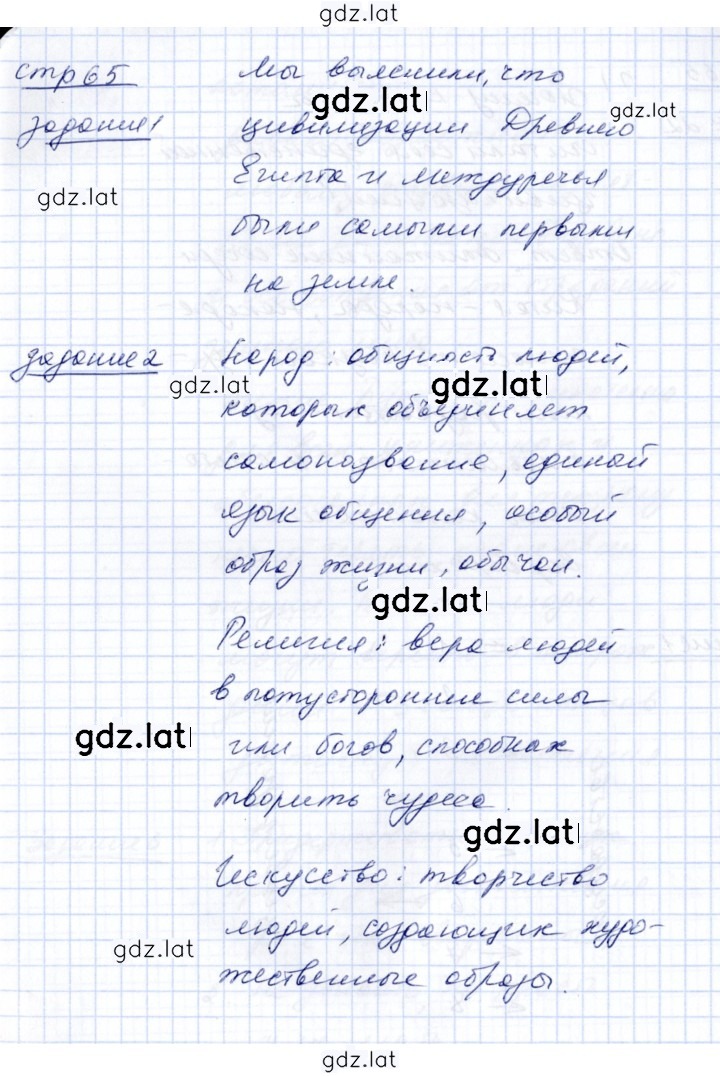 gdz.lat
стр 65 Мы выяснили, что
gdz.lat gdz.lat
задание 1 цивилизации Древнего
gdz.lat Египта и междуречья
были самыми первыми
на земле.
задание 2 Народ: общность людей,
gdz.lat gdz.lat
которых объединяет
самоназвание, единый
язык общения, особый
образ жизни, обычаи.
gdz.lat
Религия: вера людей
в потусторонние силы
gdz.lat или богов, способных
творить чудеса.
gdz.lat
Искусство: творчество
людей, создающих худо-
gdz.lat
жественные образы.
gdz.lat